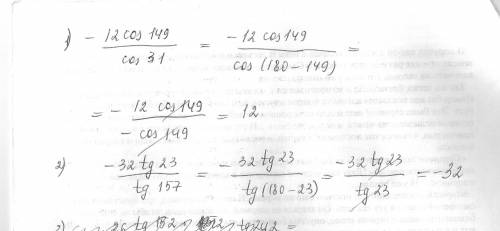 1) - 12 cos 149 / cos 31 = -12 cos 149 / cos (180 - 149) =
= - 12 cos 149 / - cos 149 = 12
2) -32 tg 23 / tg 157 = - 32 tg 23 / tg (180 - 23) = -32 tg 23 / tg 23 = -32